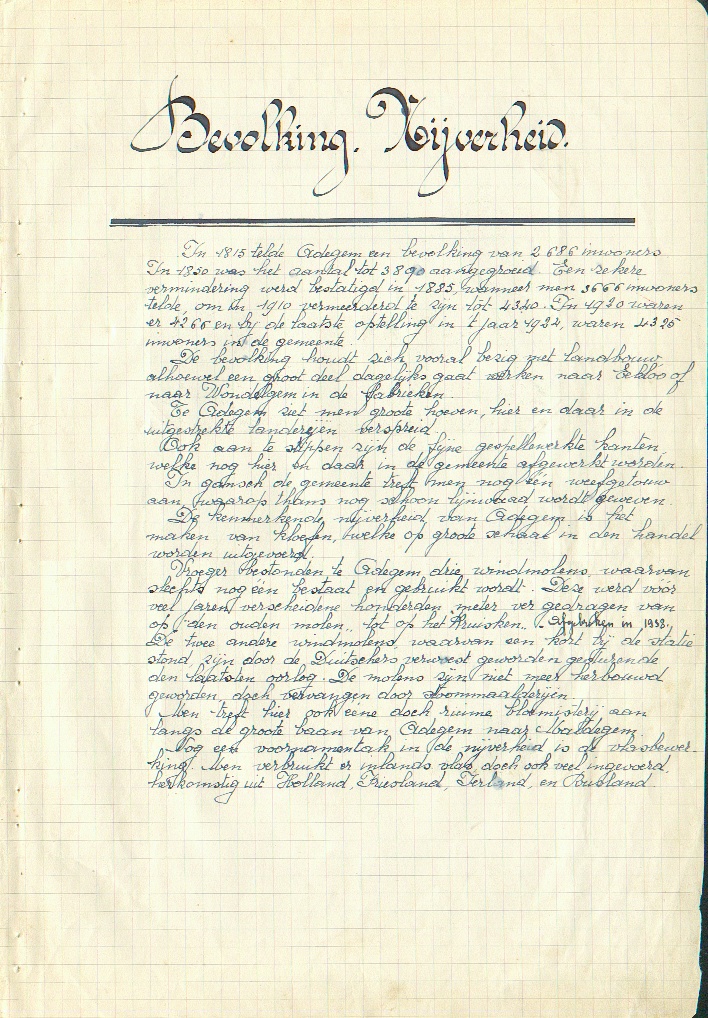 Bevolking. Nijverheid.
In 1815 telde Adegem een bevolking van 2 686 inwoners
In 1850 was het aantal tot 3890 aangegroeid. Een zekere
vermindering werd bestatigd in 1885, wanneer men 3666 inwoners
telde, om in 1910 vermeerderd te zijn tot 4340. In 1920 waren
er 4266 en bij de laatste optelling in 't jaar 1924, waren 4326
inwoners in de gemeente.
De bevolking houdt zich vooral bezig met landbouw
alhoewel een groot deel dagelijks gaat werken naar Eekloo of
naar Wondelgem in de fabrieken.
Te Adegem ziet men groote hoeven, hier en daar in de
uitgestrekte landerijen verspreid.
Ook aan te stippen zijn de fijne gespellewerkte kanten,
welke nog hier en daar in de gemeente afgewerkt worden.
In gansch de gemeente treft men nog één weefgetouw
aan, waarop thans nog schoon lijnwaad wordt geweven.
De kenmerkende nijverheid van Adegem is het
maken van kloefen, welke op groote schaal in den handel
worden uitgevoerd.
Vroeger bestonden te Adegem drie windmolens, waarvan
slechts nog één bestaat en gebruikt wordt. Deze werd vóór
veel jaren verscheidene honderden meter ver gedragen van
op den ouden molen, tot op het Kruisken. Afgebroken in 1958.
De twee andere windmolens, waarvan een kort bij de statie
stond, zijn door de Duitschers verwoest geworden gedurende
den laatsten oorlog. De molens zijn niet meer herbouwd
geworden, doch vervangen door stoommaalderijen.
Men treft hier ook ééne doch ruime bloemisterij aan
langs de groote baan van Adegem naar Maldegem.
Nog een voornamentak in de nijverheid is de vlasbewer-
king. Men verbruikt er inlands vlas, doch ook veel ingevoerd,
herkomstig uit Holland, Friesland, Ierland, en Rusland.